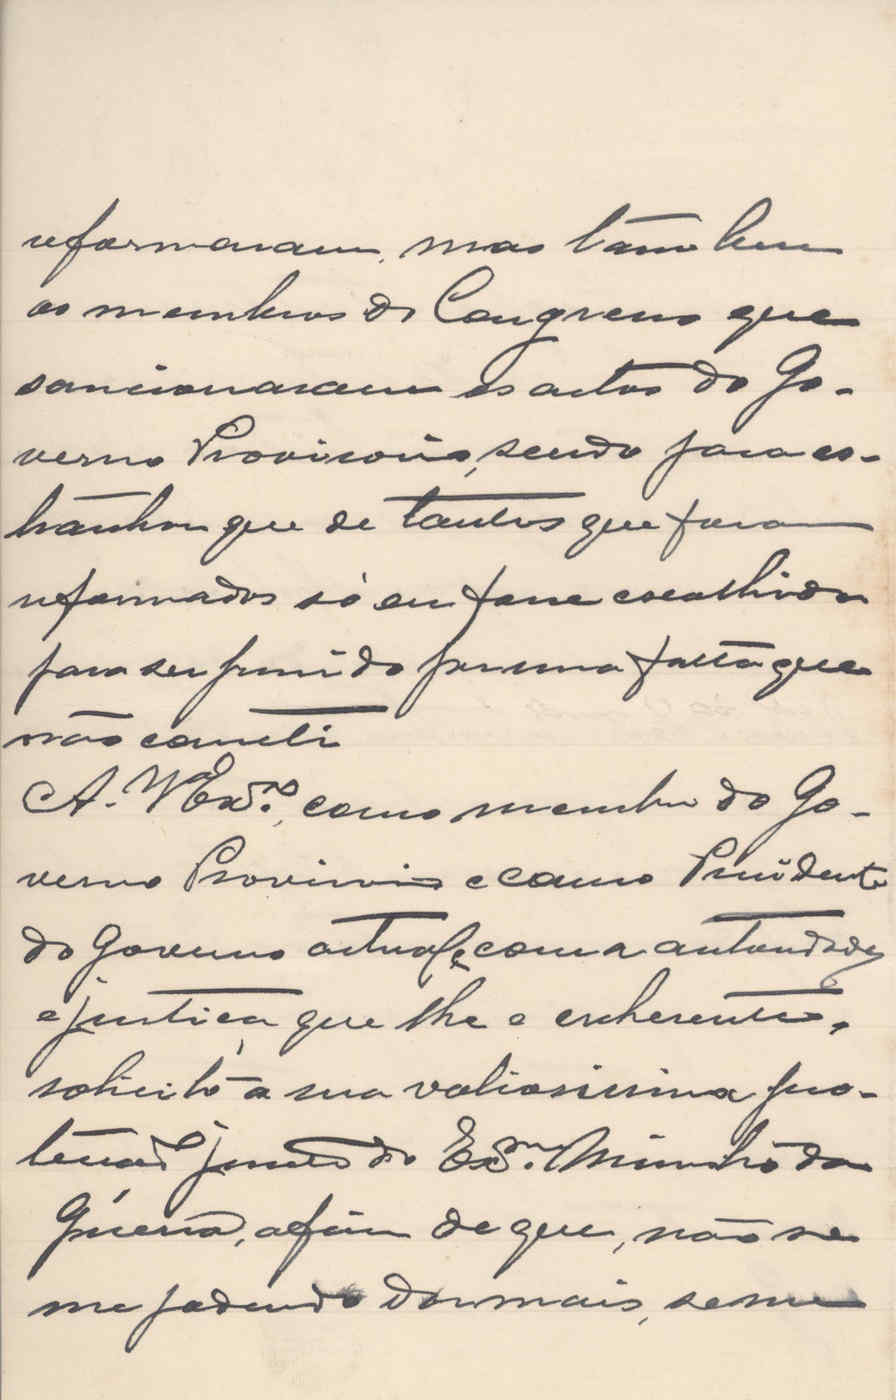 reformaram, mas tambem
os membros do Congresso que
sancionaram os actos do Go-
verno Provisorio, sendo para es-
tranhar que de tantos que foram
reformados só eu fosse escolhido
para ser punido por uma falta que
não cometi
A V. Exª., como membro do Go-
verno Provisorio e como Presidente
do Governo actual, e com a autoridade
e justiça que lhe e enherente,
solicito a sua valiosissima pro-
tecção junto do Exmº. Ministro da
Guerra, afim de que, não se
me podendo dar mais, se me